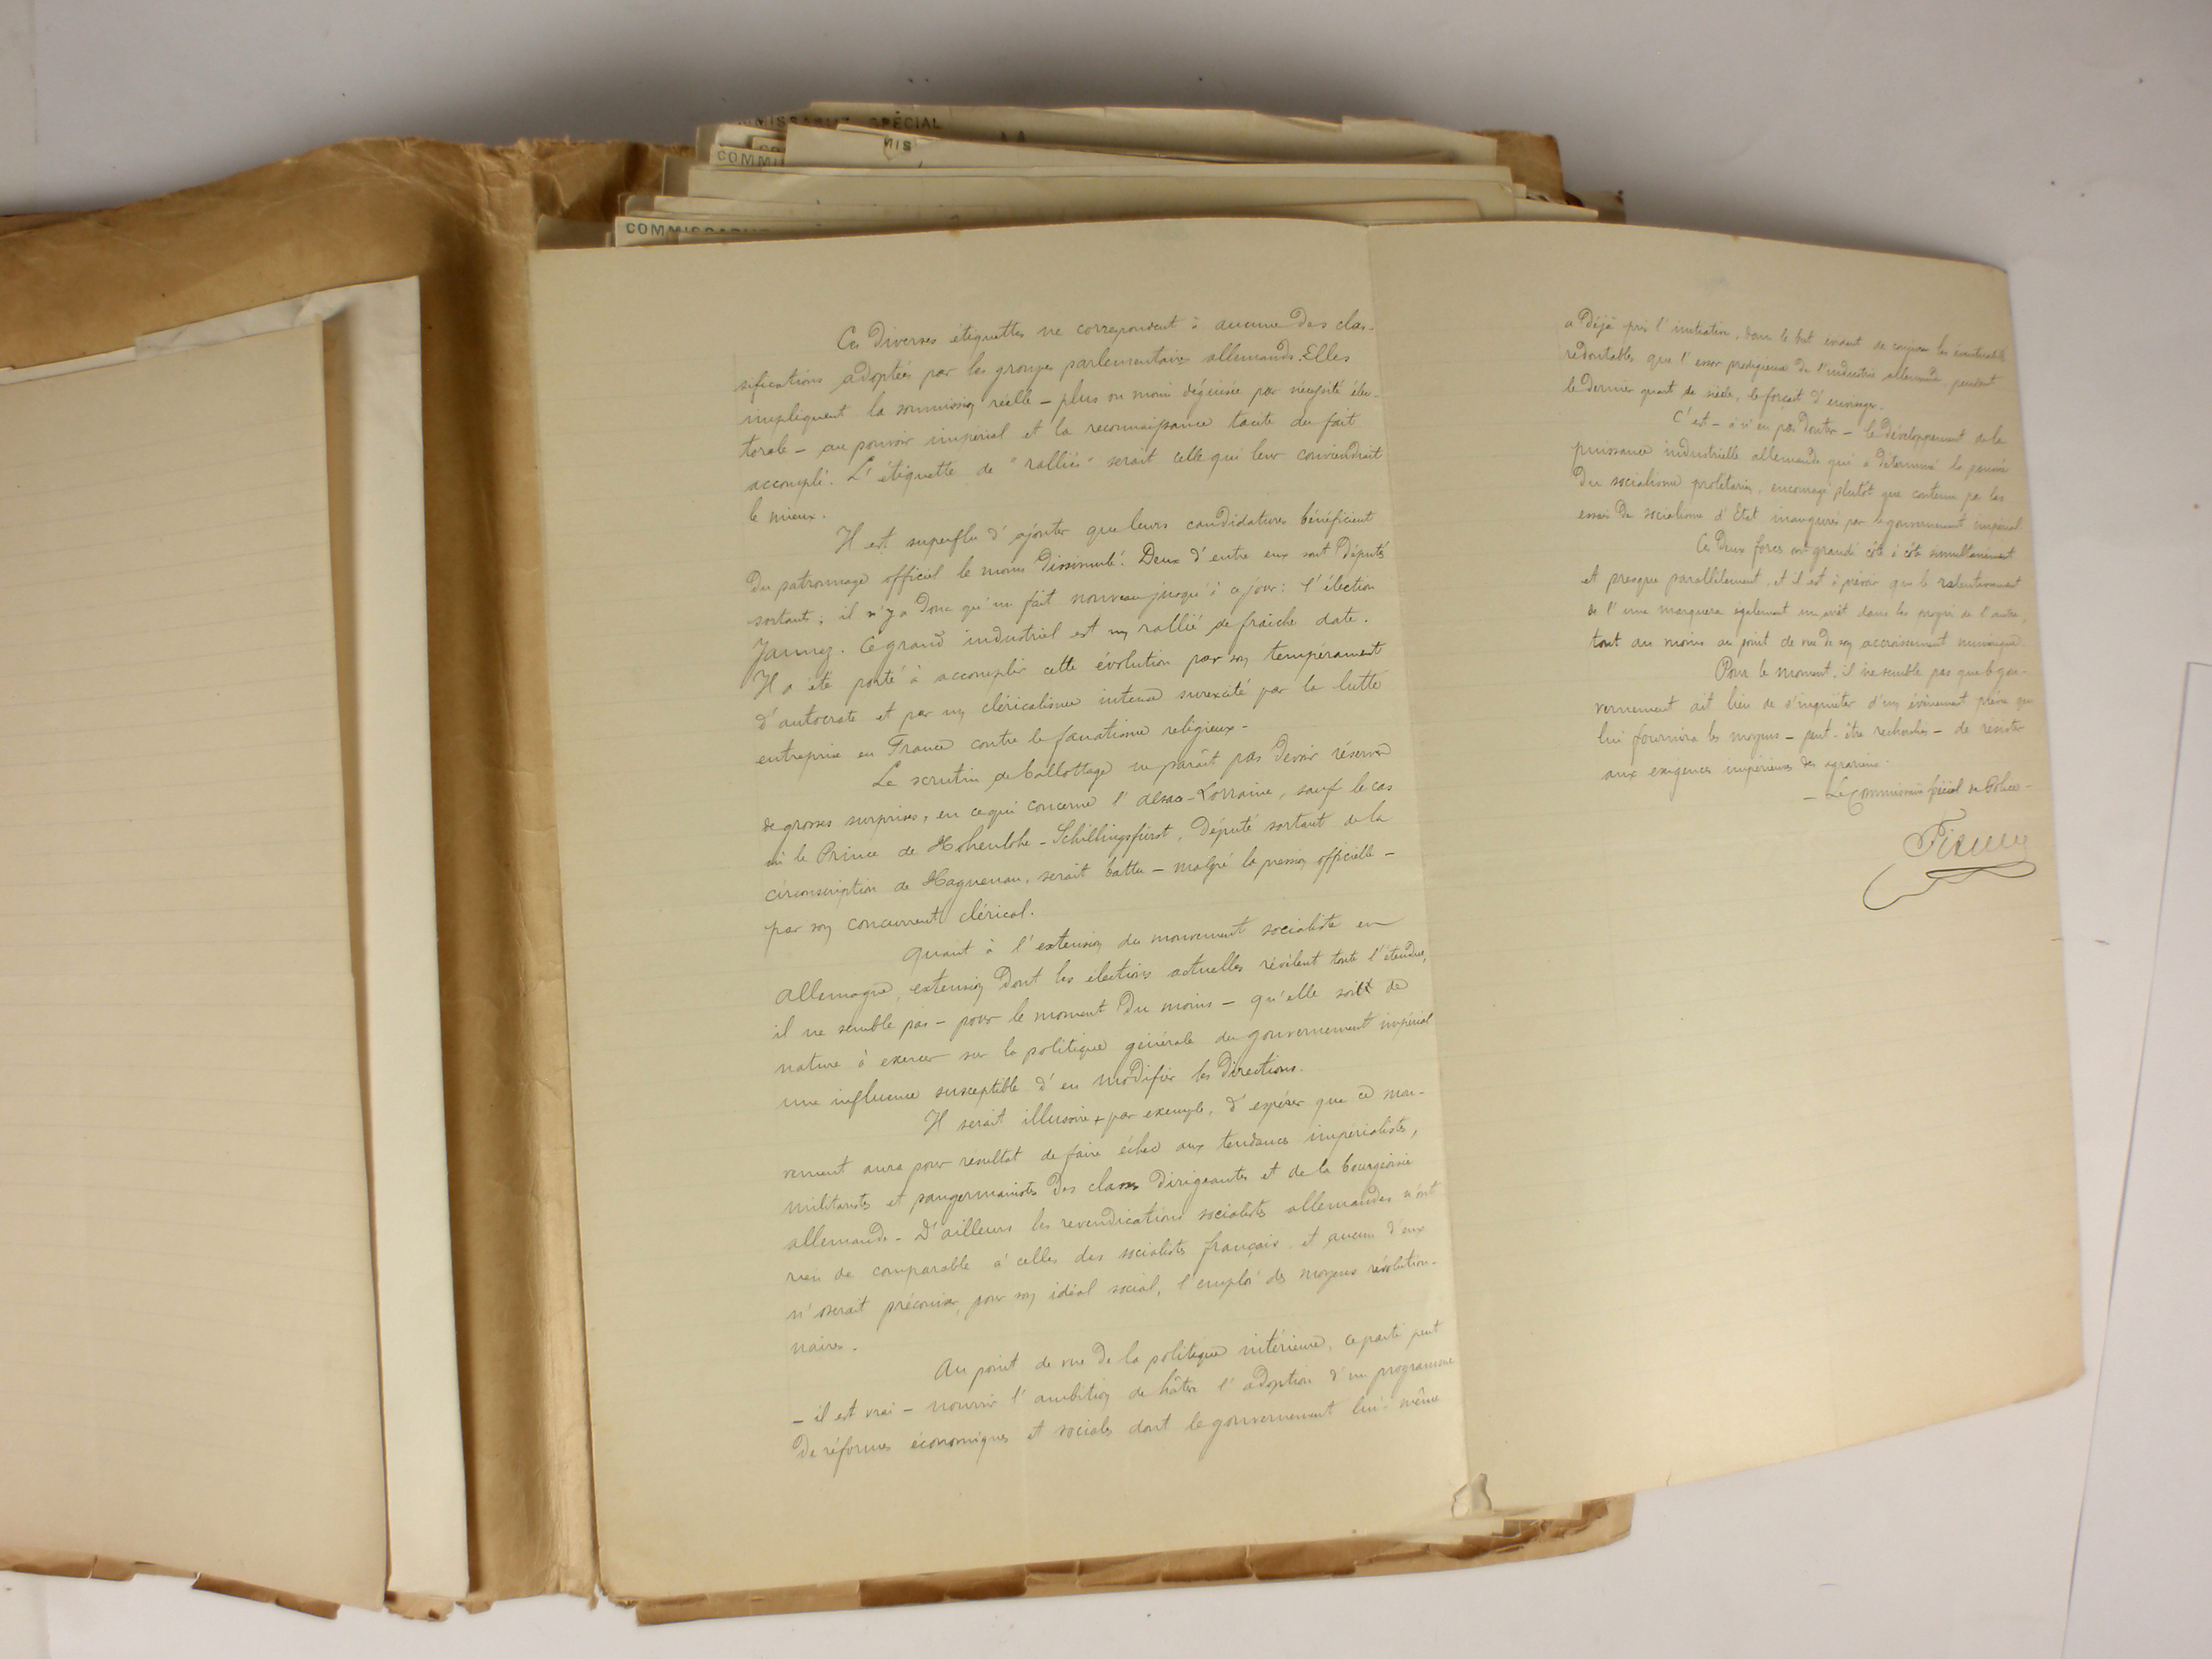 COMMISSARIAT SPÉCIAL
MIS
CO
COMMI
COMMISSARIAT
Ces diverses étiquettes ne correspondent à aucune des clas-
sifications adoptées par les groupes parlementaires allemands. Elles
impliquent la soumission réelle – plus ou moins déguisée par nécessité élec-
torale – au pouvoir impérial et la reconnaissance tacite du fait
accompli. L'étiquette de "ralliés" serait celle qui leur conviendrait
le mieux.
Il est superflu d'ajouter que leurs candidatures bénéficient
du patronnage officiel le moins dissimulé. Deux d'entre eux sont députés
sortants; il n'y a donc qu'un fait nouveau jusqu'à ce jour: l'élection
Jaunez. Ce grand industriel est un rallié de fraîche date.
Il a été porté à accomplir cette évolution par son tempérament
d'autocrate et par un cléricalisme intense surexcité par la lutte
entreprise en France contre le fanatisme religieux –
Le scrutin de ballottage ne paraît pas devoir réserver
de grosses surprises, en ce qui concerne l'Alsace-Lorraine, sauf le cas
où le Prince de Hohenlohe-Schillingsfürst, député sortant de la
circonscription de Haguenau, serait battu – malgré la pression officielle –
par son concurrent clérical.
Quant à l'extension du mouvement socialiste en
Allemagne, extension dont les élections actuelles révèlent toute l'étendue,
il ne semble pas – pour le moment du moins – qu'elle soit de
nature à exercer sur la politique générale du gouvernement impérial
une influence susceptible d'en modifier les directions.
Il serait illusoire, par exemple, d'espérer que ce mou-
vement aura pour résultat de faire échec aux tendances impérialistes,
militaristes et pangermanistes des classes dirigeantes et de la bourgeoisie
allemande – D'ailleurs les revendications socialistes allemandes n'ont
rien de comparable à celles des socialistes français, et aucun d'eux
n'oserait préconiser, pour son idéal social, l'emploi des moyens révolution-
naires.
Au point de vue de la politique intérieure, ce parti peut
– il est vrai – nourrir l'ambition de hâter l'adoption d'un programme
de réformes économiques et sociales dont le gouvernement lui-même
a déjà pris l'initiative, dans le but évident de conjurer les éventualités
redoutables que l'essor prodigieux de l'industrie allemande, pendant
le dernier quart de siècle, le forçait d'envisager.
C'est – à n'en pas douter – le développement de la
puissance industrielle allemande qui a déterminé la poussée
du socialisme prolétarien, encouragé plutôt que contenu par les
essais de socialisme d'Etat inaugurés par le gouvernement impérial
Ces deux forces ont grandi côte à côte simultanément
et presque parallèlement, et il est à prévoir que le ralentissement
de l'une marquera également un arrêt dans les progrès de l'autre,
tout au moins au point de vue de son accroissement numérique.
Pour le moment, il ne semble pas que le gou-
vernement ait lieu de s'inquiéter d'un événement prévu qui
lui fournira les moyens – peut-être recherchés – de résister
aux exigences impérieuses des agrariens.
– Le Commissaire spécial de Police –